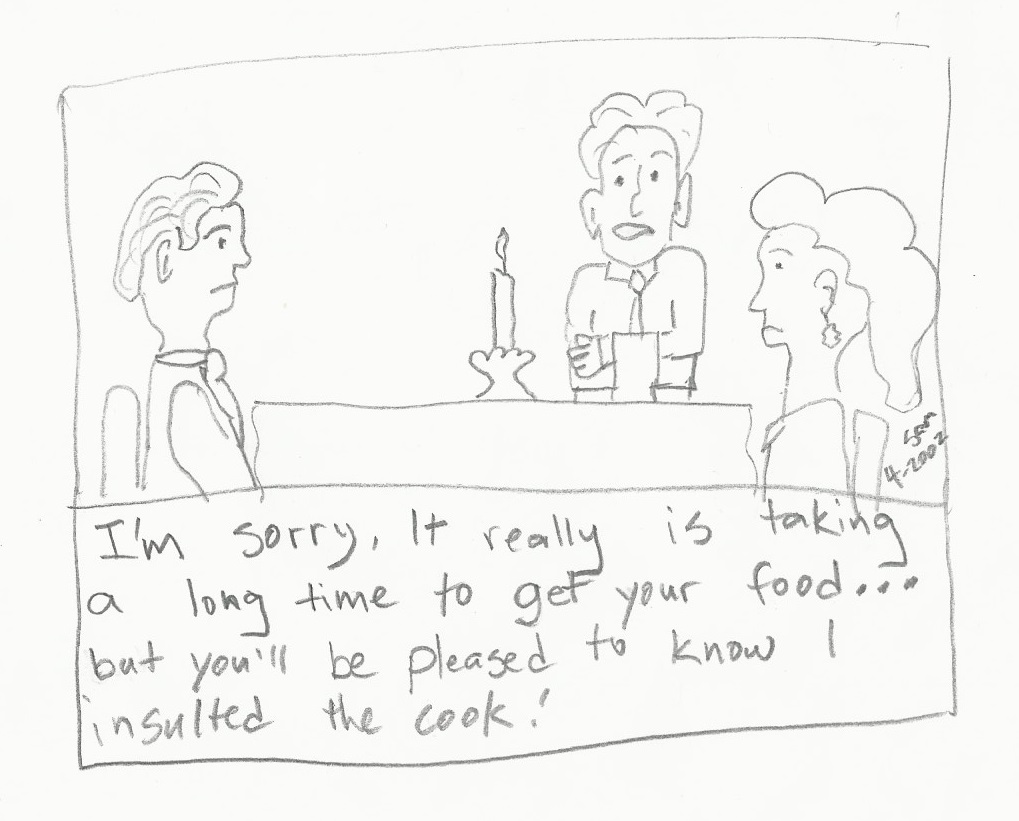 Sam
4-2002
I'm sorry, It really is taking
a long time to get your food...
but you'll be pleased to know I
insulted the cook!